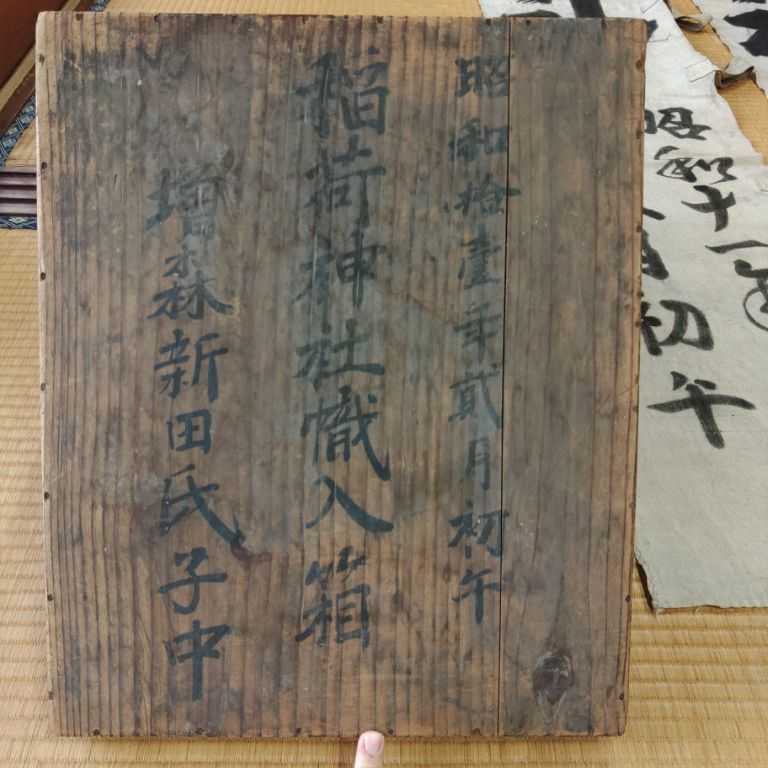 昭和拾壹年貳月初午
稲荷神社幟入箱
増森新田氏子中
昭和十一年
月初午